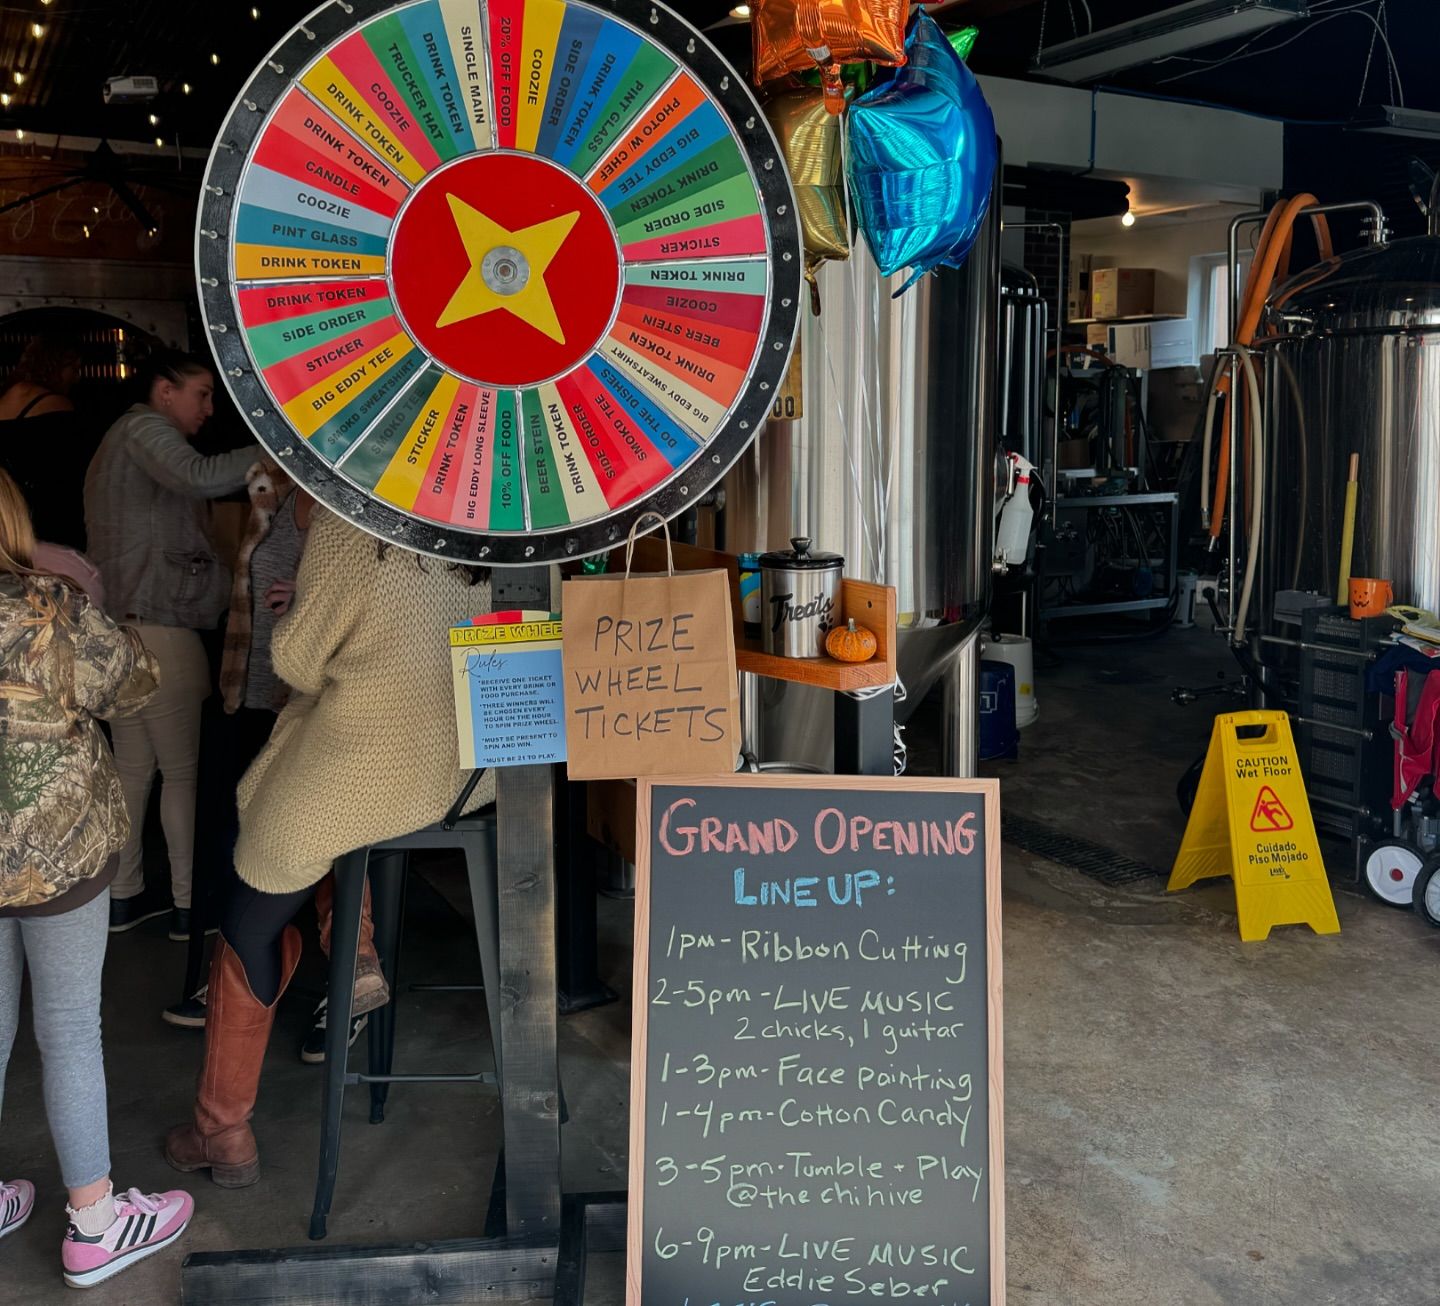 20% OFF FOOD
COOZIE
SIDE ORDER
DRINK TOKEN
PINT GLASS
PHOTO W/ CHEF
BIG EDDY TEE
DRINK TOKEN
SIDE ORDER
STICKER
DRINK TOKEN
COOZIE
BEER STEIN
DRINK TOKEN
BIG EDDY SWEATSHIRT
DO THE DISHES
SMOKD TEE
SIDE ORDER
DRINK TOKEN
BEER STEIN
10% OFF FOOD
BIG EDDY LONG SLEEVE
DRINK TOKEN
STICKER
SMOKD TEE
SMOKD SWEATSHIRT
BIG EDDY TEE
STICKER
SIDE ORDER
DRINK TOKEN
DRINK TOKEN
PINT GLASS
COOZIE
CANDLE
DRINK TOKEN
DRINK TOKEN
COOZIE
TRUCKER HAT
DRINK TOKEN
SINGLE MAIN
Treats
PRIZE WHEE
Rules:
*RECEIVE ONE TICKET
WITH EVERY DRINK OR
FOOD PURCHASE.
*THREE WINNERS WILL
BE CHOSEN EVERY
HOUR ON THE HOUR
TO SPIN PRIZE WHEEL.
*MUST BE PRESENT TO
SPIN AND WIN.
*MUST BE 21 TO PLAY.
PRIZE
WHEEL
TICKETS
CAUTION
Wet Floor
Cuidado
Piso Mojado
GRAND OPENING
LINE UP:
1pm- Ribbon Cutting
2-5pm - LIVE MUSIC
2 chicks, 1 guitar
1-3pm- Face painting
1-4pm- Cotton Candy
3-5pm. Tumble + Play
@ the chihive
6-9pm- LIVE MUSIC
Eddie Seber